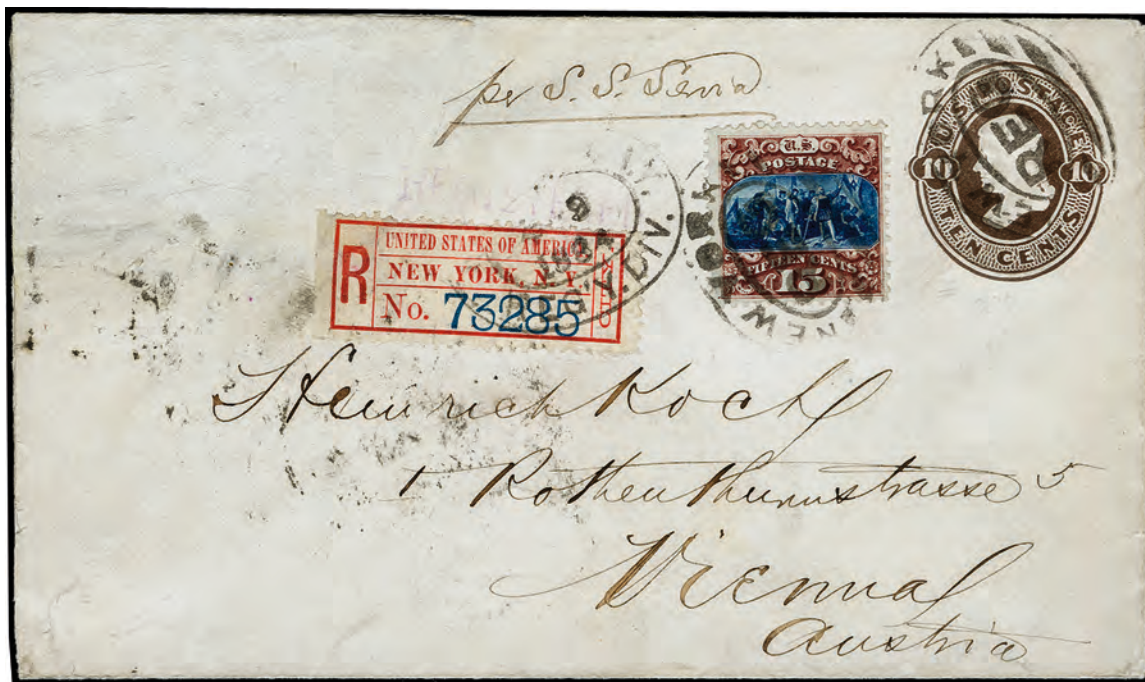 per S. S. Servia
U.S. POSTAGE
10 10
TEN CENTS
U.S.
POSTAGE
FIFTEEN CENTS
15
NEW YORK
R
UNITED STATES OF AMERICA
NEW YORK, N.Y.
No. 73285
Y. DIV.
Heinrich Koch
1 Rothenthurmstrasse 5
Vienna
Austria